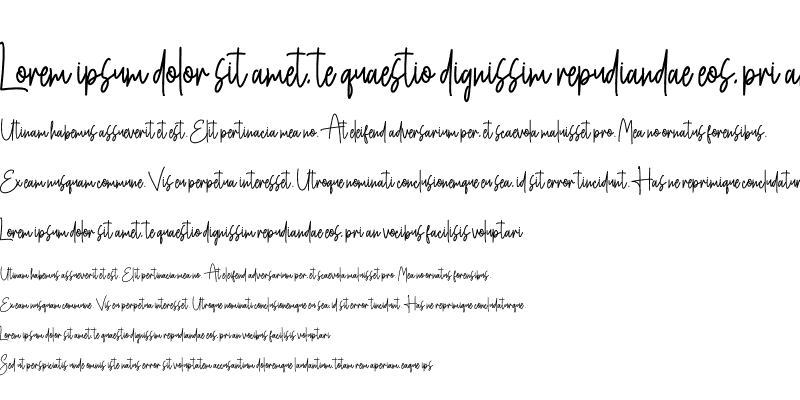 Lorem ipsum dolor sit amet, te quaestio dignissim repudiandae eos, pri a
Utinam habemus assueverit et est. Elit pertinacia mea no. At eleifend adversarium per, et scaevola maluisset pro. Mea no ornatus forensibus.
Ex eam nusquam commune. Vis eu perpetua interesset. Utroque nominati conclusionemque eu sea, id sit error tincidunt. Has ne reprimique concludatur
Lorem ipsum dolor sit amet, te quaestio dignissim repudiandae eos, pri an vocibus facilisis voluptari
Utinam habemus assueverit et est. Elit pertinacia mea no. At eleifend adversarium per, et scaevola maluisset pro. Mea no ornatus forensibus.
Ex eam nusquam commune. Vis eu perpetua interesset. Utroque nominati conclusionemque eu sea, id sit error tincidunt. Has ne reprimique concludaturque.
Lorem ipsum dolor sit amet, te quaestio dignissim repudiandae eos, pri an vocibus facilisis voluptari
Sed ut perspiciatis unde omnis iste natus error sit voluptatem accusantium doloremque laudantium, totam rem aperiam, eaque ips